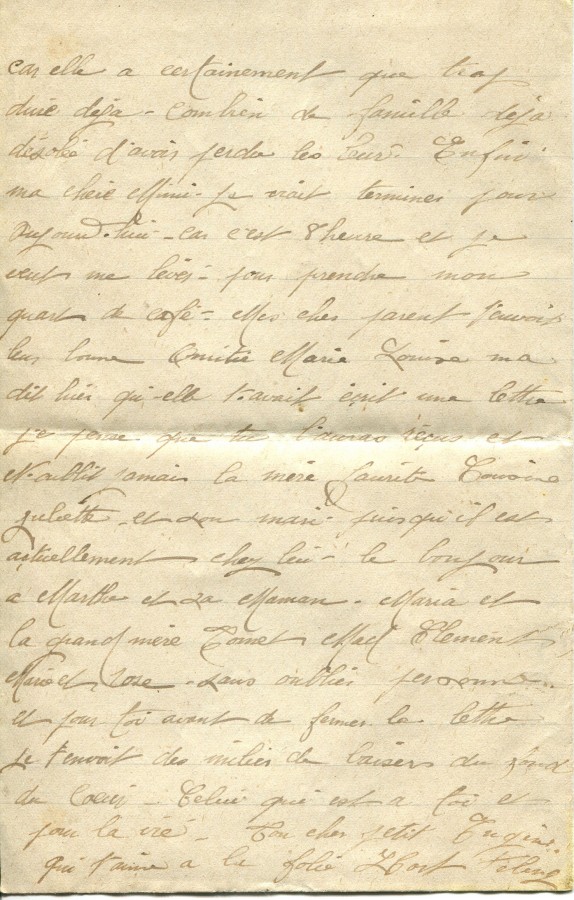 car elle a certainement que trop
dure deja - Combien de famille deja
désolé d'avoir perdu les leurs Enfin
ma cheie Mimi - je vait terminer pour
aujourd-hui - car c'est 8 heure et je
veut me lever - pour prendre mon
quart de café - Mes cher parent t'envoir
leur bonne Amitié Marie Louise ma
dit hier qu-elle t'avait écrit une lettre
je pense que tu l'auras reçus et
N'oublit jamais la mère Laurite Cousine
Juliette et son mari - puisqu'il est
actuellement chez lui - le bonjour
a Marthe et sa Maman - Maria et
la grand mère Comet Mad Clement
Marie et Rose - sans oublier personne
et pour toi avant de fermer le lettre
je t'envoit des milier de baisers du fond
du Coeur - Celui qui est a toi et
pour la vie - Ton cher petit Eugène
qui t'aime a la folie